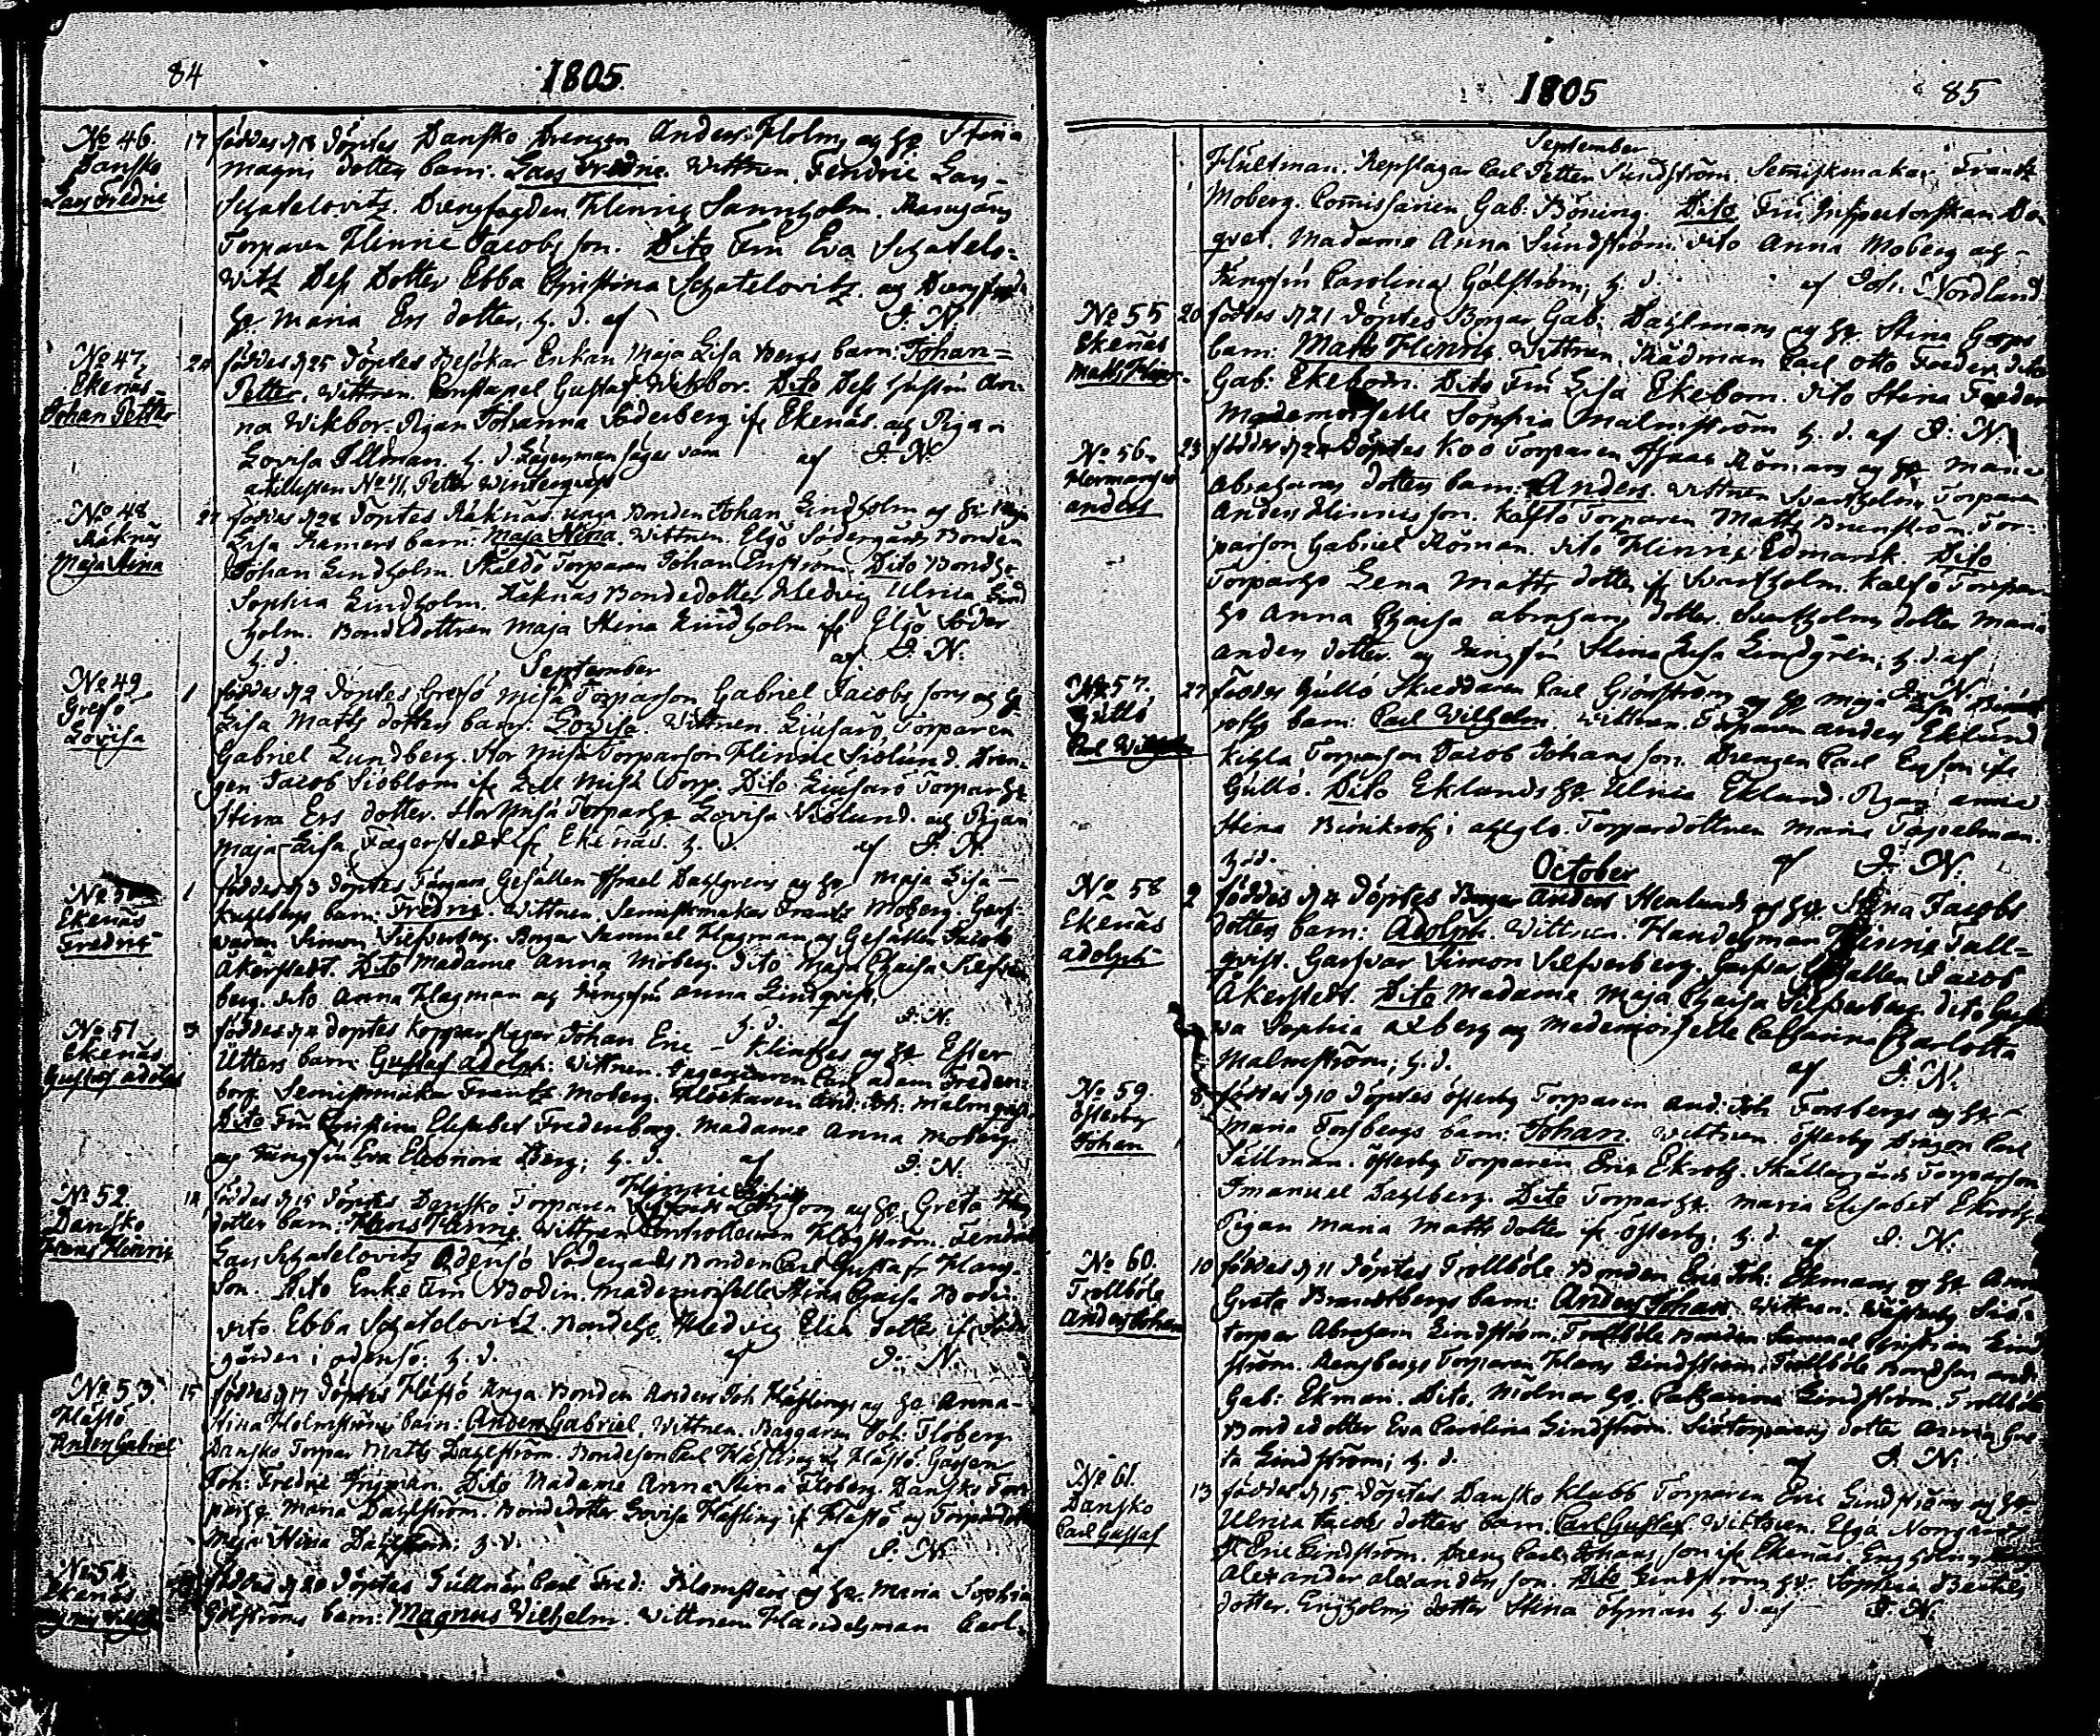 84
1805.
No 46.
Dansko
Lars Fredric
17 föddes d 18 döptes Dansko Drengen Anders Holms og H. Stina
Magni dotters barn. Lars Fredric. Wittnen. Fendric Lars
Schatelovitz. Drengfogden Henric Sannholm.
Torparen Henric Jacobsson. Dito Fru Eva Schatelo-
witz Dess Dotter Ebba Christina Schatelovitz. og
H. Maria Ers dotter, h. d. af J. N.
No 47
Ekenäs
Johan Petter
24 föddes d 25 döptes Besökar Enkan Maja Lisa Bergs barn: Johan
Petter. Wittnen. Constapel Gustaf Wikbor. Dito Dess hustru An-
na Wikbor. Pigan Johanna Söderberg if Ekenäs. og Pigan
Lovisa Illman. h. d. Lägersman säges vara
No 11, Petter Winterqvist af J. N.
No 48
Räknäs
Maja Stina
27 föddes d 28 döptes Räknäs unga Bonden Johan Lindholm og H. Maja
Lisa Ramers barn: Maja Stina. Wittnen. Elgö Södergårds Bonden
Johan Lindholm. Skåldö Torparen Johan Enström. Dito Bondh.
Sophia Lindholm. Räknäs Bondedotter Hedvig Ulrica Lind
holm. Bondedottren Maja Stina Lindholm if Elgö Söder
h. d. af J. N.
September
No 49
Gresö
Lovisa
1 föddes d 2 döptes Gresö Misä Torparson Gabriel Jacobssons og H
Lisa Matts dotters barn: Lovisa. Wittnen. Liusarö, Torparen
Gabriel Lundberg. Stor Misä Torparson Henric Siölund. Dren-
gen Jacob Siöblom if Lill Misä Torp. Dito Liusarö Torparh.
Stina Ers dotter. Stor Misä Torparh Lovisa Siölund. og Pigan
Maja Lisa Fagerstedt if Ekenäs. h. d. af J. N.
Ekenäs
Fredric
1 föddes d 3 döptes Färgare Gesällen Israel Dahlgrens og H. Maja Lisa
Kuhlbergs barn: Fredric. Wittnen. Semskmakar Frantz Moberg. Garf-
waren Simon Silfverberg. Borgar Samuel Hagman og Gesällen Jacob
Åkerstedt. Dito Madame Anna Moberg. dito Maja Chaisa Silfver
berg. dito Anna Hagman og Jungfru Anna Lindqvist,
h. d. af J. N.
No 51
Ekenäs
Gustaf Adolph
3 föddes d 4 döptes Kopparslagar Johan Eric Klinthes og H. Ester
Ütters barn: Gustaf Adolph: Wittnen. Carl Adam Freden-
borg. Semskmakar Frantz Moberg. Klockaren And: Joh: Malmqvist.
Dito Fru Christina Elisabet Fredenborg. Madame Anna Moberg
og Jungfru Eva Eleonora Berg; h. d. af J. N.
No 52.
Dansko
Hans Henric
14 föddes d 15 döptes Dansko Torparen Henric og H. Greta
dotters barn: Hans Henric. Wittnen Controlleuren Högström. Fendric
Lars Schatelovitz Odensö Södergårds Bonden Carl Gustaf Hans-
Son. Dito Enke Fru Bodin. Mademoiselle Stina Chaisa Bodin.
dito Ebba Schatelovitz. Bondeh. Hedvig Elia dotter if Söder
gården i odensö. h. d. af J. N.
No 53
Hästö
Anders Gabriel
15 föddes d 17 döptes Hästö Unga Bonden Anders Joh. Häslings og H. Anna-
Stina Holmströms barn: Anders Gabriel. Wittnen. Baggaren Joh: Floberg.
Dansko Torpar Matts Dahlström. Bondeson Carl Häsling if Hästö.
Joh: Fredric Fryman. Dito Madame Anna Stina Floberg. Dansko Tor
parh. Maria Dahlström. Bondedotter Lovisa Häsling if Hästö og Torpardott
Maja Stina Dahlström; h. d. af J. N.
No 54
Ekenäs
föddes d 20 döptes Tullnär Carl Fred: Blomsters og H. Maria Sophia
Gölströms barn: Magnus Wilhelm. Wittnen. Handelsman Carl.
1805
85
September
Hultman. Repslagar Carl Petter Sundström. Semskmakar Frantz
Moberg. Commissarien Gab: Böning. Dito Fru Inspectorskan
qvet. Madame Anna Sundström. dito Anna Moberg og
Jungfru Carolina Gölström; h. d. af Joh. Nordlund
No 55
Ekenäs
Matts Henr.
20 föddes d 21 döptes Borgar Gab: Dahlmans og H. Stina
barn: Matts Henric. Wittnen. Rådman Carl Otto Foeder. dito
Gab: Ekebom. Dito Fru Lisa Ekebom. dito Stina Foeder
Mademoiselle Sophia Malmström h. d. af J. N.
No 56
Hermansö
Anders
23 föddes d 24 döptes Koö Torparen Isaac Römans og H. Maria
Abrahams dotters barn: Anders. Wittnen Svartholm, Torparen
Anders Henricsson. Kalfö Torparen Matts Brunström. Tor-
parson Gabriel Röman. dito Henric Edmark. Dito
Torparh. Lena Matts dotter if Svartholm. Kalfö Torpar
h. Anna Chaisa Abrahams dotter. Svartholms dotter Maria
Anders dotter. og Jungfru Stina Lisa Lindgren; h. d. af
J. N.
No 57.
Gullö
Carl Wilhelm
27 föddes Gullö Skräddaren Carl Giörström og H. Maja Lisa
barn: Carl Wilhelm. Wittnen. Torparen Anders Eklund
Torparson Jacob Johansson. Drengen Carl Ersson if
Gullö. Dito Eklunds H. Ulrica Eklund. Pigan Anna
Stina Torpardottren Maria Tapelman.
h. d. af J. N.
October
No 58
Ekenäs
Adolph
2 föddes d 4 döptes Borgar Anders Stenlunds og H. Stina Jacobs
dotters barn: Adolph. Wittnen. Handelsman Henric Tall-
qvist. Garfvar Simon Silfverberg. Garfvar Gesällen Jacob
Åkerstedt. Dito Madame Maja Chaisa Silfverberg. dito Gust
va Sophia Axberg og Mademoiselle Catharina Charlotta
Malmström; h. d. af J. N.
No 59.
Österby
Johan
8 föddes d 10 döptes Österby Torparen And: Joh Forsbergs og H.
Maria Forsbergs barn: Johan. Wittnen. Österby Drengen Carl
Sällman. Österby Torparen Eric Ekroth. Skällargårds Torparson
Imanuel Dahlberg. Dito Torparh. Maria Elisabet Ekroth.
Pigan Maria Matts dotter if Österby; h. d. af J. N.
No 60.
Trollböle
Anders Johan
10 föddes d 11 döptes Trollböle Bonden Eric Joh: Ekmans og H. Anna
Greta Brandtbergs barn: Anders Johan. Wittnen: Wästerby Siö-
torpar Abraham Lindström. Trollböle Bonden Samuel Christian Lind
ström. Torparen Hans Lindström. Trollböle Bondson And
Gab: Ekman. Dito, Mölnar H. Catharina Lindström. Trollböle
Bondedotter Eva Carolina Lindström. Siötorparens dotter Anna Gre
ta Lindström; h. d. af J. N.
No 61.
Dansko
Carl Gustaf
13 föddes d 15 döptes Dansko Klubb Torparen Eric Lindströms og H.
Ulrica Jacobs dotters barn. Carl Gustaf. Wittnen. Elgö Norrgårds
Eric Lindström. Dreng Carl Johansson if Ekenäs. Engholms
Alexander Alexandersson. Dito Lindströms H. Sophia Bertils
dotter. Engholms dotter Stina Öhman h. d. af J. N.